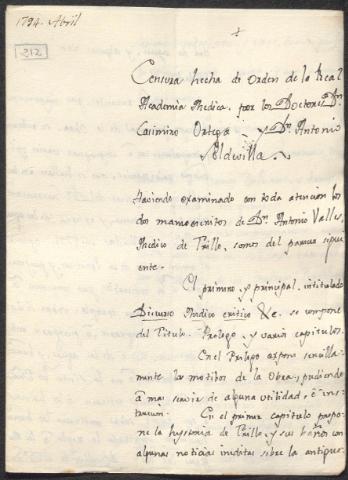 1794. Abril
312
+
Censura hecha de Orden de la Real
Academia Medica, por los Doctores Dn.
Casimiro Ortega y Dn. Antonio
Soldevilla.
Haviendo examinado con toda atencion los
dos manuescritos de Dn. Antonio Valles,
Medico de Trillo, somos del parecer sigui
ente.
El primero, y principal, intitulado
Discurso Medico critico &c. se compone
del Titulo, Prologo, y varios capitulos.
En el Prologo expone sencilla-
mente los motibos de la Obra, pudiendo
á mas servir de alguna utilidad, é ins-
truccion. En el primer capitulo propo-
ne la hystoria de Trillo, y sus baños con
algunas noticias ineditas sobre la antigue-